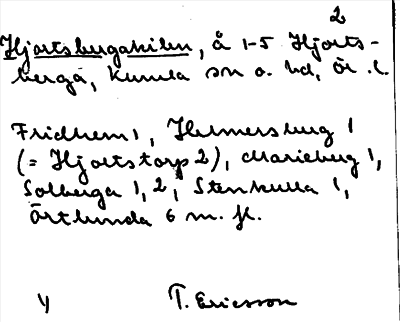 2
Hjortsbergakilen, å 1-5 Hjorts-
berga, Kumla sn o. hd, Ör. l.
Fridhem 1, Helmersburg 1
(= Hjortstorp 2), Marieberg 1,
Solberga 1, 2, Stenkulla 1,
Örtlunda 6 m. fl.
4 T. Ericsson